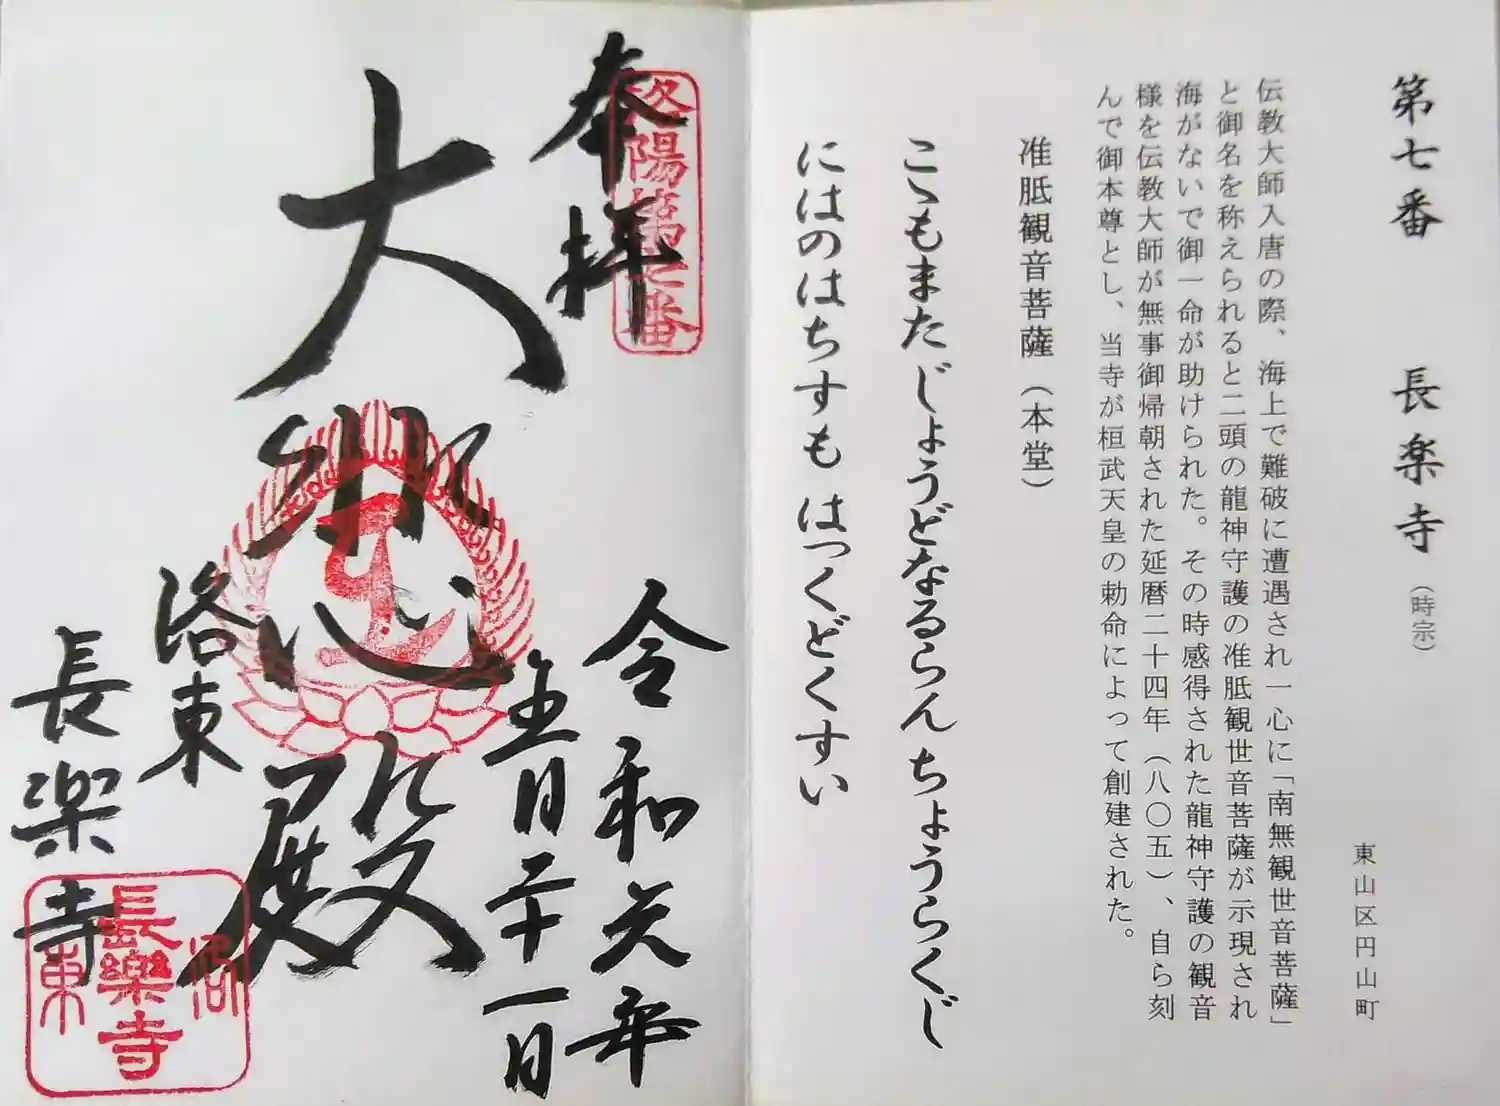 第七番 長楽寺 (時宗)
東山区円山町
伝教大師入唐の際、海上で難破に遭遇され一心に「南無観世音菩薩」
と御名を称えられると二頭の龍神守護の准胝観世音菩薩が示現され
海がないで御一命が助けられた。その時感得された龍神守護の観音
様を伝教大師が無事御帰朝された延暦二十四年(八〇五)、自ら刻
んで御本尊とし、当寺が桓武天皇の勅命によって創建された。
准胝観音菩薩(本堂)
こゝもまたじょうどなるらん ちょうらくじ
にはのはちすも はっくどくすい
奉拝
洛陽第七番
令和元年
五月二十一日
大悲殿
洛東
長楽寺
洛
長樂寺
東